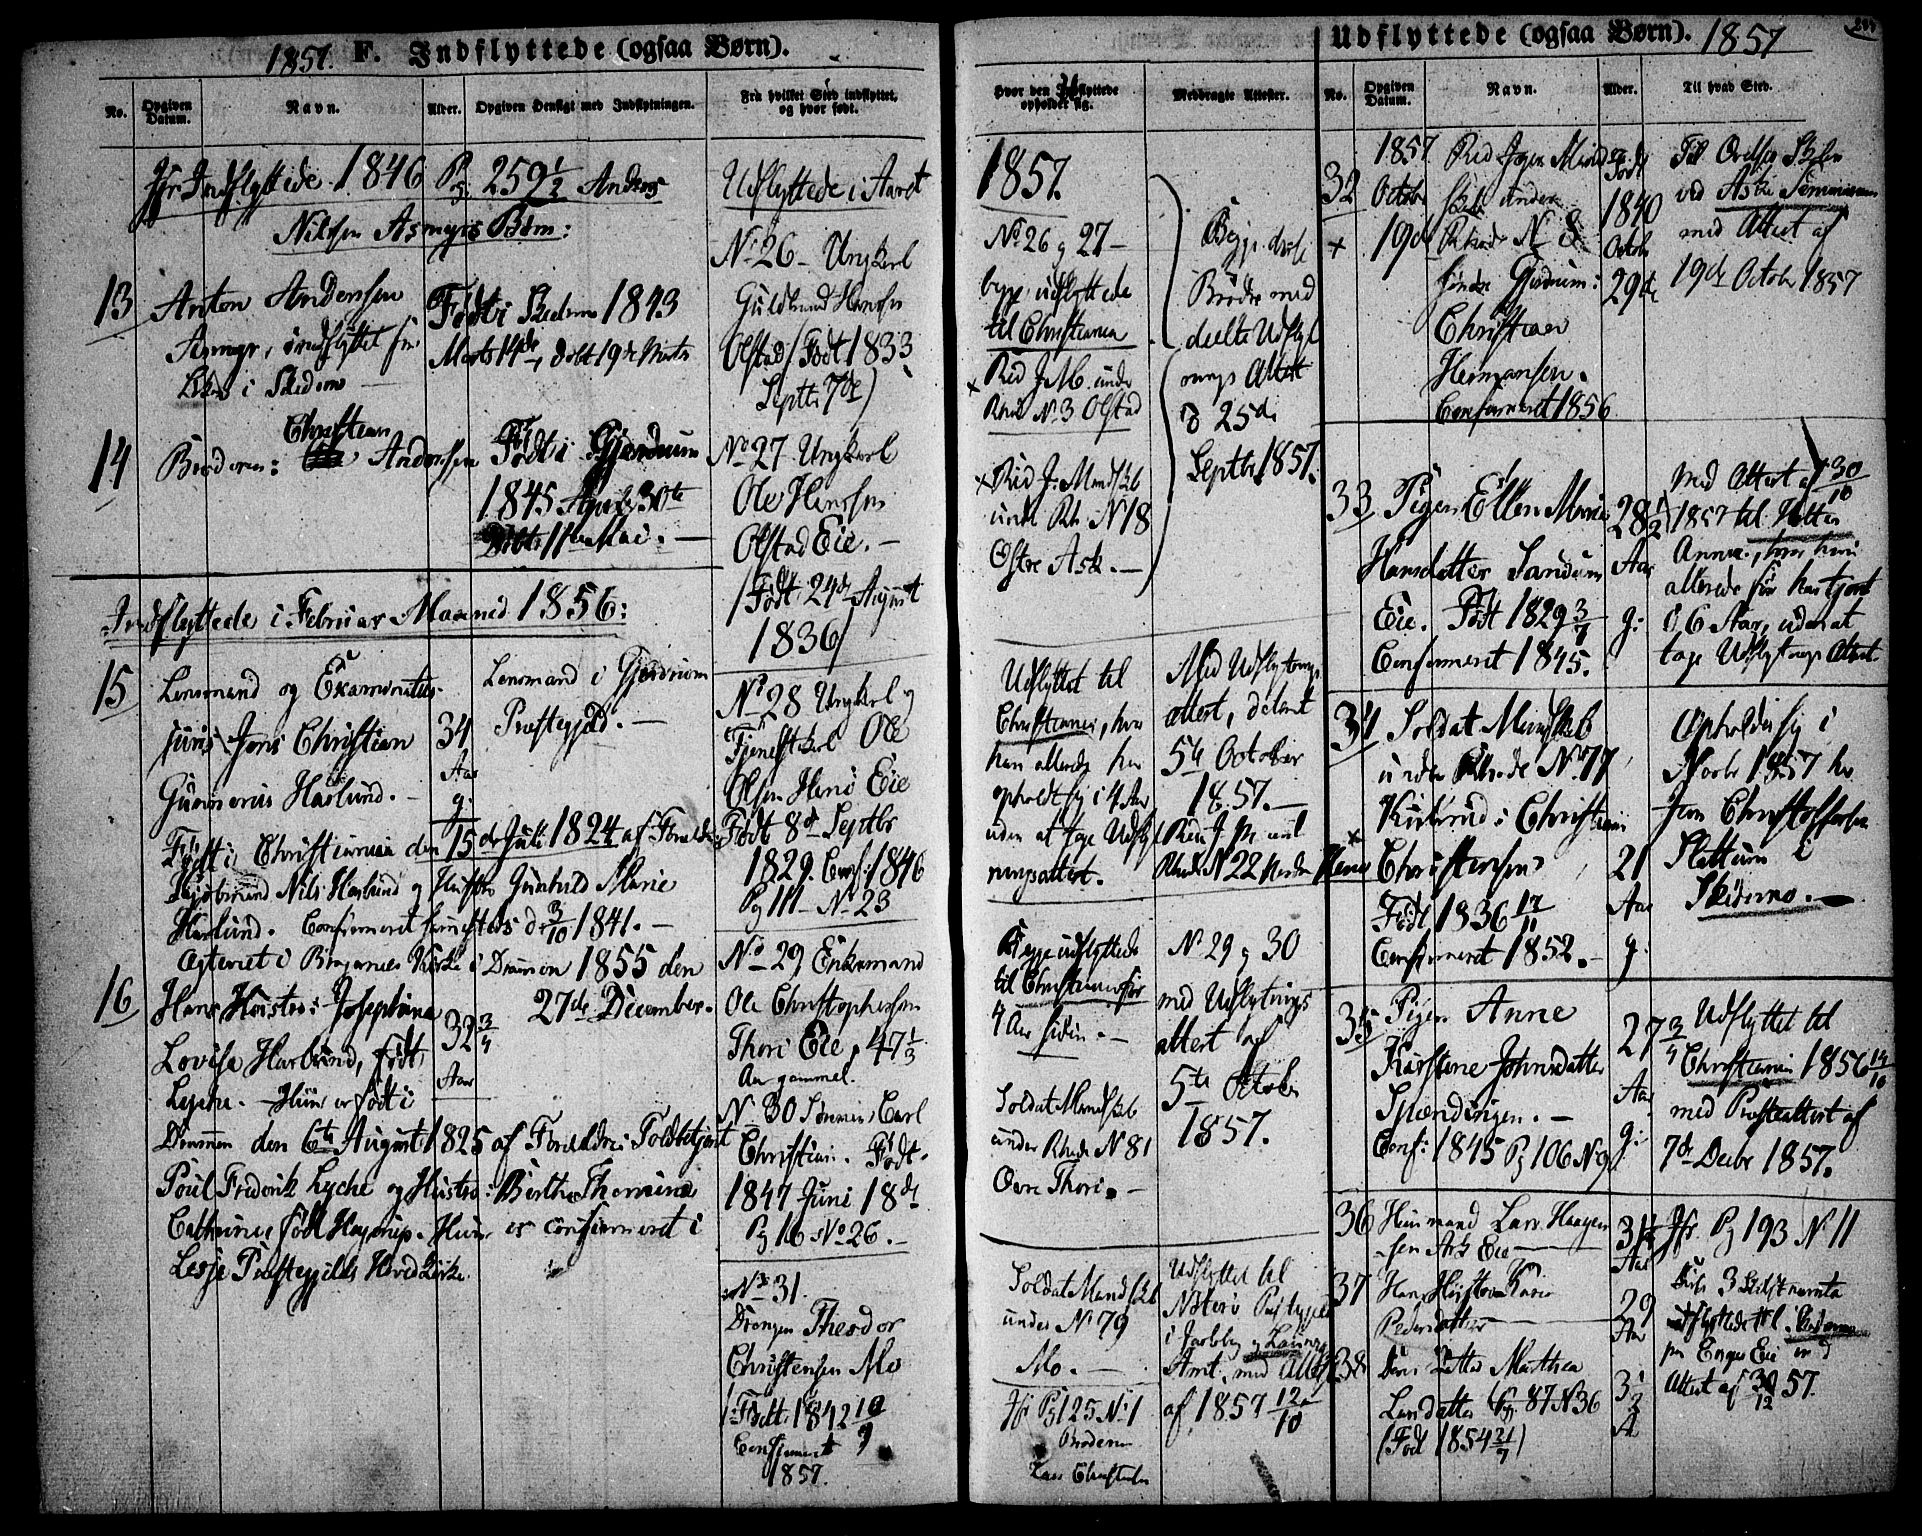 1857. F. Indflyttede (ogsaa Børn).
No.
Opgiven Datum.
Navn.
Alder.
Opgiven Hensigt med Indflytningen.
Fra hvilket Sted indflyttet, og hvor født.
Jfr Indflyttede 1846 Pg 259 1/2 Anders
Nilsen Asmyrs Børn:
13 Anton Anderssen
Asmyr, indflyttet fra
i Skedsmo
Født i Skedsmo 1843
Marts 14de, døbt 19de
14 Broderen: Christian Anderssen
Født i Gjerdrum
1845 April 30te
Døbt 11te Mai. —
Indflyttede i Februar Maaned 1856:
15 Lensmand og Examinatus
juris Jens Christian
Gunnerius Harlund. —
34
Aar
g.
Lensmand i Gjerdrum
Præstegjæld. —
Født i Christiania den 15de Juli 1824 af Forældre:
Nils Harlund og Hustru Gunhild Marie
Harlund. Confirmeret d. 3/10 1841. —
Copuleret i Bragernes Kirke i Drammen 1855 den
27de December.
16 Hans Hustru: Josephine
Lovise Harlund, født
Lyche. — Hun er født i
32 3/4
Aar
Drammen den 6te August 1825 af Forældre: Toldbetjent
Poul Frederik Lyche og Hustru: Berthe Thomine
Cathrine, født Høyerup. Hun er confirmeret i
Lesje Præstegjelds Hovedkirke.
Udflyttede i Aaret
No. 26 — Ungkarl
Guldbrand Hansen
Olstad (Født 1833
Septbr 7de)
No. 27 Ungkarl
Ole Hansen
Olstad Eie. —
(Født 24de August
1836)
No 28 Ungkarl og
Tjenestekarl Ole
Olsen Eie
Født 8de Septbr
1829. Conf: 1846
Pg 111 — No. 23
No 29 Enkemand
Ole Christophersen
Thori Eie, 47 1/3
Aar gammel.
No. 30 Sønnen, Carl
Christian. Født
1847 Juni 18de
Pg 16 No. 26. —
No. 31.
Drengen Theodor
Christensen Mo
Født: 1842 10/9
Confirmeret
1857.
Udflyttede (ogsaa Børn). 1857
Hvor den Udflyttede opholder sig.
Medbragte Attester.
No.
Opgiven Datum.
Navn.
Alder.
Til hvad Sted.
1857.
No. 26 og 27 —
begge udflyttede
til Christiania
x Rød J. M. under
Rhode No. 3 Olstad
x Rød J: Mandskb
under Rh. No 18
Østre Ask. —
Begge disse
Brødre med
deelte Udflyt
nings Attest
d 25de
Septbr 1857.
Udflyttet til
Christiania, hvor
han allerede har
opholdt sig i 4 Aar
uden at tage Udflyt
ningsattest.
Med Udflytnings
attest, dateret
5te October
1857. —
Rød J. M. under
Rhode No 22
Begge udflyttede
til Christiania for
4 Aar siden. —
Soldat Mandskb
under Rhode No 81
Øvre Thori. —
No 29 og 30
med Udflytnings
attest af
5te October
1857.
Soldat Mandskb
under No 79
Mo. —
Jfr Pg 125 No. 1
Broderen
Lars Christensen
Udflyttet til
Nøterø Præstegjeld
i Jarlsberg og Laurvigs
Amt, med Attest
af 1857 12/10
32
x
1857
October
19de
Rød Jæger Mandskb under
Rhode No 8
søndre Gjerdrum:
Christian
Hermansen.
Confirmeret 1856
Født
1840
Octobr
29de
ved Asker Seminarium
med Attest af
19de October 1857
33 Pigen Ellen Marie
Hansdatter Sandum
Eie. Født 1829 3/7
Confirmeret 1845.
28 1/2
Aar
g:
Med Attest af 30/10
1857 til
allerede før har tjent
i 6 Aar, uden at
tage Udflytnings Attest.
34 Soldat Mandskb
under Rhode No. 77
Kirkerud: Christian
Christensen
Født 1836 17/11
Confirmeret 1852. —
21
Aar
g.
Opholder sig i
Novbr 1857 hos
Jon Christoffersen
Slattum i
Skedsmo. —
35 Pigen Anne
Kirstine Johnsdatter
Spændingen. —
Conf: 1845 Pg 106 No 9
27 3/4
Aar
g:
Udflyttet til
Christiania 1856 14/10
med Præsteattest af
7de Decbr 1857.
36 Huusmand Lars Haagen
sen Ask Eie —
31 1/2
Aar
Jfr. Pg 193 No 11
37 Hans Hustru Karen
Pedersdatter —
29
Aar
Disse 3 sidstnævnte
udflyttede til
paa Enger Eie med
Attest af 30/12 57.
38 Deres Datter Mathea
Larsdatter (Pg 87 No 36
(Født 1854 21/7)
3 1/2
Aar